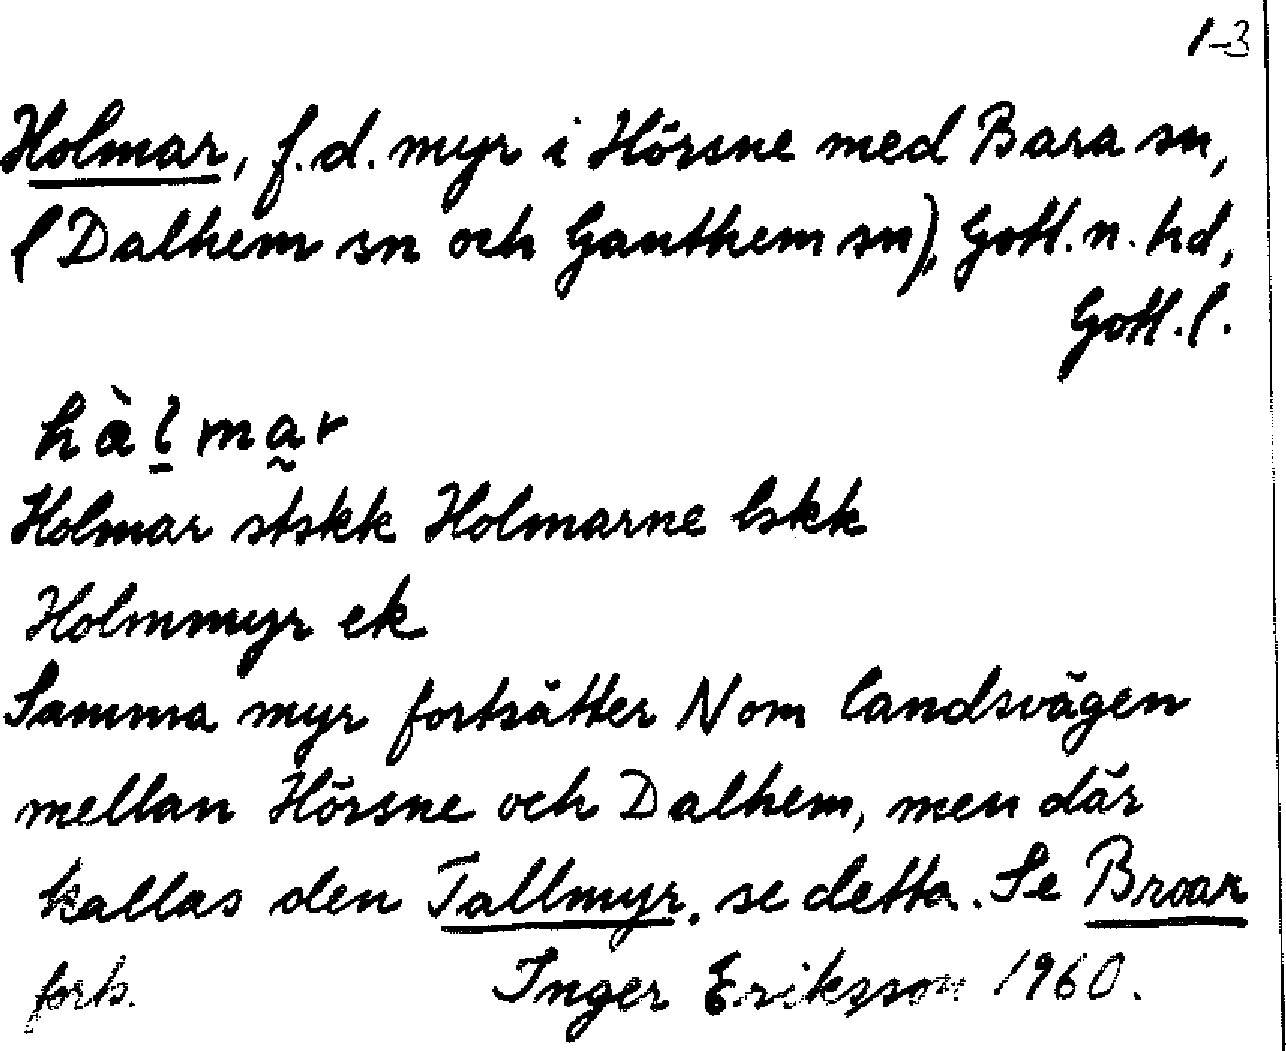 1-3
Holmar, f.d. myr i Hörsne med Bara sn,
(Dalhem sn och Ganthem sn), Gotl. n. hd,
Gotl. l.
hàl̠ma̰r
Holmar stskk Holmarne lskk
Holmmyr ek
Samma myr fortsätter N om landsvägen
mellan Hörsne och Dalhem, men där
kallas den Tallmyr, se detta. Se Broar
forts. Inger Eriksson 1960.